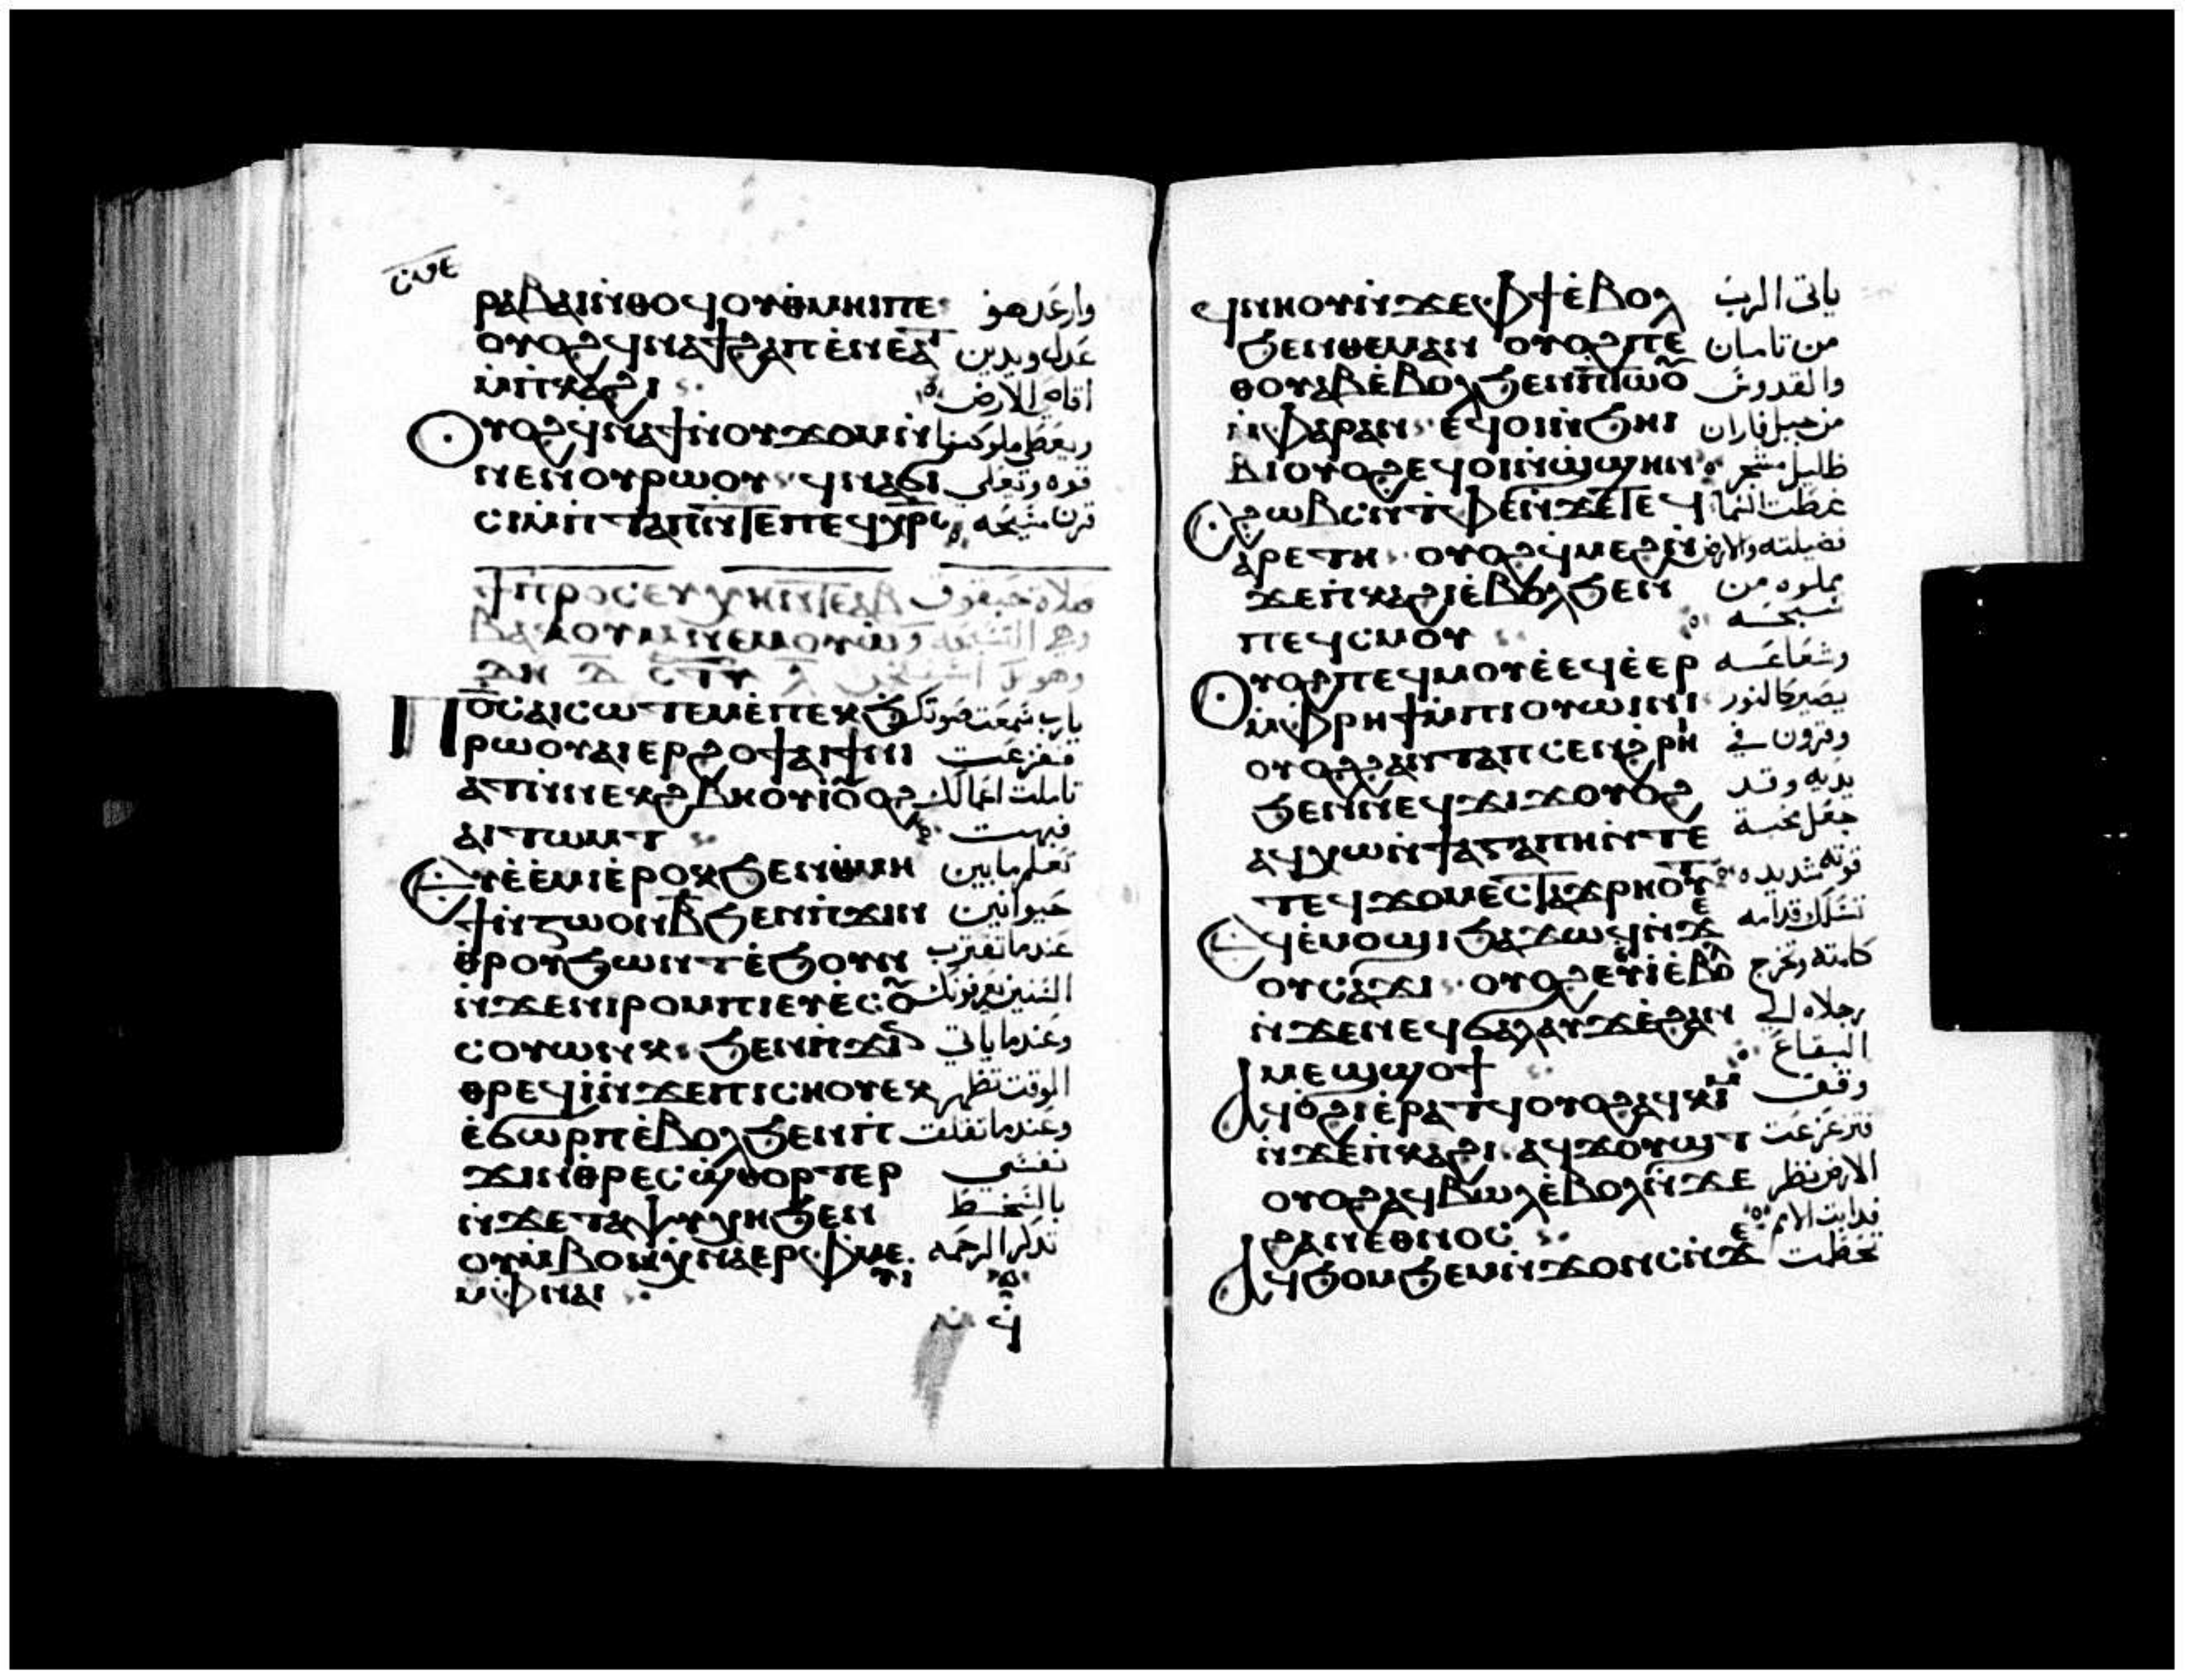 ⲣⲁⲃⲁⲛⲛⲑⲟϥⲟⲩⲑⲙⲏⲓⲡⲉ وارعدهو
ⲟⲩⲟϩϥⲛⲁϯϩⲁⲡⲉⲛⲉⲁ عدل ويدين
ⲙⲡⲕⲁϩⲓ اقاصي الارض
ⲟⲩⲟϩϥⲛⲁϯⲛⲟⲩϫⲟⲙⲛ ويعطي ملوكنا
ⲛⲉⲛⲟⲩⲣⲱⲟⲩ ϥⲛⲁϭⲓ قوه وتعلي
ⲥⲓⲙⲡⲧⲁⲡⲛⲧⲉⲡⲉϥⲭⲣⲥ قرن مسيحه
ϯⲡⲣⲟⲥⲉⲩⲭⲏⲛⲧⲉⲁⲃ صلاة حبقوق
ⲃⲁⲕⲟⲩⲙⲛⲉⲙⲟⲩⲱ وهي التسبحه
ⲇⲏ
ⲡⲟⲥⲁⲓⲥⲱⲧⲉⲙⲉⲡⲉⲕϧ يارب سمعت صوتك
ⲣⲱⲟⲩⲁⲓⲉⲣϩⲟϯⲁⲓϯⲛⲓ ففزعت
ⲁⲧⲛⲛⲉⲕϩⲃⲏⲟⲩⲓⲟⲩⲟϩ تاملت اعمالك
ⲁⲓⲧⲱⲙⲧ فبهت
ⲉⲩⲉⲉⲙⲓⲉⲣⲟⲕϧⲉⲛⲑⲙⲏ تعلم مابين
ϯⲛⲍⲱⲟⲛⲃϧⲉⲛⲡϫⲓⲛ حيوانين
ⲑⲣⲟⲩϧⲱⲛⲧⲉϧⲟⲩⲛ عندما تقترب
ⲛϫⲉⲛⲓⲣⲟⲙⲡⲓⲉⲩⲉⲥⲟ السنين يعرفونك
ⲥⲟⲩⲱⲛⲕ ϧⲉⲛⲡϫⲓ وعندما ياتي
ⲑⲣⲉϥⲓⲛϫⲉⲡⲓⲥⲏⲟⲩⲉⲕ الوقت تظهر
ⲉϭⲱⲣⲡⲉⲃⲟⲗϧⲉⲛⲡ وعندما تقلقت
ϫⲓⲛⲑⲣⲉⲥϣⲑⲟⲣⲧⲉⲣ نفسي
ⲛϫⲉⲧⲁⲯⲩⲭⲏϧⲉⲛ بالسخط
ⲟⲩⲙⲃⲟⲛⲭⲛⲁⲉⲣⲫⲙⲉ تذكر الرحمه
ⲩⲓ
ⲙⲫⲛⲁⲓ
ϥⲛⲏⲟⲩⲛϫⲉⲫϯⲉⲃⲟⲗ ياتي الرب
ϧⲉⲛⲑⲉⲙⲁⲛ ⲟⲩⲟϩⲡⲉ من تامان
ⲑⲟⲩⲁⲃⲉⲃⲟⲗϧⲉⲛⲡⲧⲱⲟ والقدوس
ⲙⲫⲁⲣⲁⲛ ⲉϥⲟⲛϧⲏⲓ من جبل فاران
ⲃⲓⲟⲩⲟϩⲉϥⲟⲛϣϣⲏⲛ ظليل مشجر
ϩⲱⲃⲥⲛⲧⲫⲉⲛϫⲉⲧⲉϥ غطت السما
ⲁⲣⲉⲧⲏ ⲟⲩⲟϩϥⲙⲉϩⲛ فضيلته والارض
ϫⲉⲡⲕⲁϩⲓⲉⲃⲟⲗϧⲉⲛ مملوه من
ⲡⲉϥⲥⲙⲟⲩ تسبحته
ⲟⲩⲟϩⲡⲉϥⲙⲟⲩⲉⲉϥⲉⲉⲣ وشعاعه
ⲙⲫⲣⲏϯⲙⲡⲓⲟⲩⲱⲓⲛⲓ يصير كالنور
ⲟⲩⲟϩϩⲁⲛⲧⲁⲡⲥⲉⲛϩⲣⲏ وقرون في
ϧⲉⲛⲛⲉϥϫⲓϫⲟⲩⲟϩ يديه وقد
ⲁϥⲭⲱⲛϯⲁⲅⲁⲡⲏⲛⲧⲉ جعل محبة
ⲧⲉϥϫⲟⲙⲉⲥⲧⲁϫⲣⲏⲟⲩⲧ قوته شديده
ⲉϥⲉⲙⲟϣⲓϧⲁϫⲱϥⲛϫⲉ تسلك قدامه
ⲟⲩⲥⲁϫⲓ ⲟⲩⲟϩⲉⲩⲓⲉⲃⲟ كلمته وتخرج
ⲛϫⲉⲛⲉϥϭⲁⲗⲁⲩϫⲉϩⲁⲛ رجلاه الي
ⲙⲉϣϣⲟϯ البقاع
ⲁϥⲟϩⲓⲉⲣⲁⲧϥⲟⲩⲟϩⲁϥⲕⲓⲙ وقف
ⲛϫⲉⲡⲕⲁϩⲓ ⲁϥϫⲟⲩϣⲧ فتزعزعت
ⲟⲩⲟϩⲁϥⲃⲱⲗⲉⲃⲟⲗⲛϫⲉ الارض نظر
ϩⲁⲛⲉⲑⲛⲟⲥ فذابت الامم
ⲁϥϧⲟⲙϧⲉⲙⲛϫⲟⲛⲥⲛϫⲉ